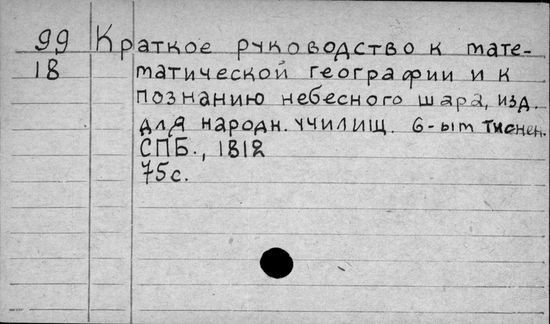 99 Краткое руководство к мате-
18 матической географии и к
познанию небесного шара, изд.
для народн. училищ. 6-ым тиснен.
СПБ., 1818
75 с.